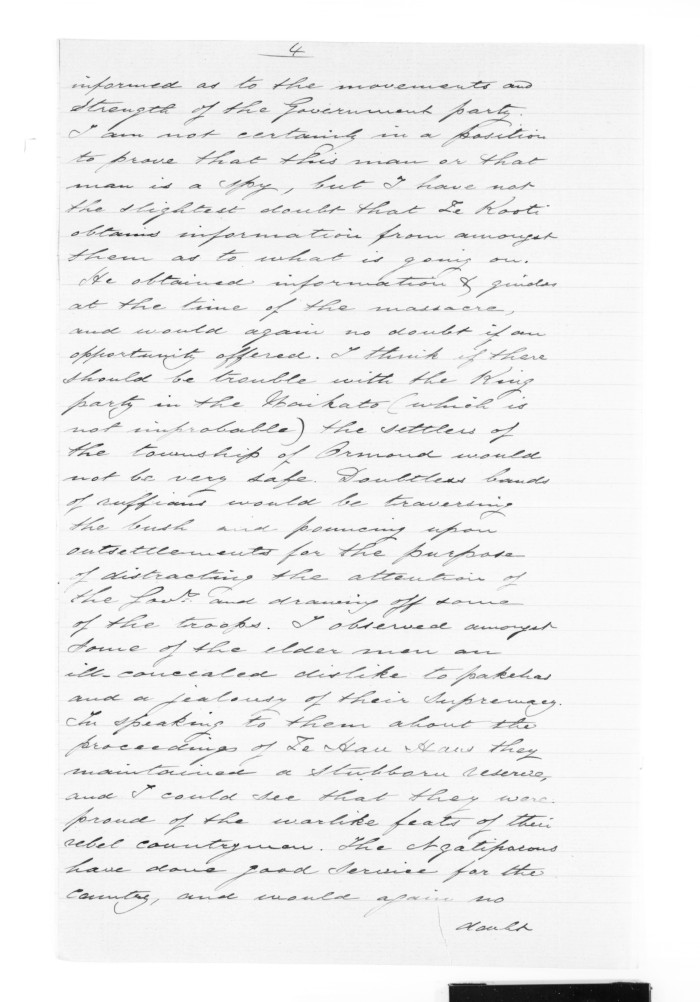 4
informed as to the movements and
strength of the Government party.
I am not certainly in a position
to prove that this man or that
man is a spy, but I have not
the slightest doubt that Te Kooti
obtains information from amongst
them as to what is going on.
He obtained information & guides
at the time of the massacre,
and would again no doubt if an
opportunity offered. I think if there
should be trouble with the King
party in the Waikato (which is
not improbable) the settlers of
the township of Ormond would
not be very safe. Doubtless bands
of ruffians would be traversing
the bush and pouncing upon
outsettlements for the purpose
of distracting the attention of
the Govt. and drawing off some
of the troops. I observed amongst
some of the elder men an
ill-concealed dislike to pakehas
and a jealousy of their supremacy.
In speaking to them about the
proceedings of Te Hau Haus they
maintained a stubborn reserve,
and I could see that they were
proud of the warlike feats of their
rebel countrymen. The Ngatiporous
have done good service for the
country, and would again no
doubt